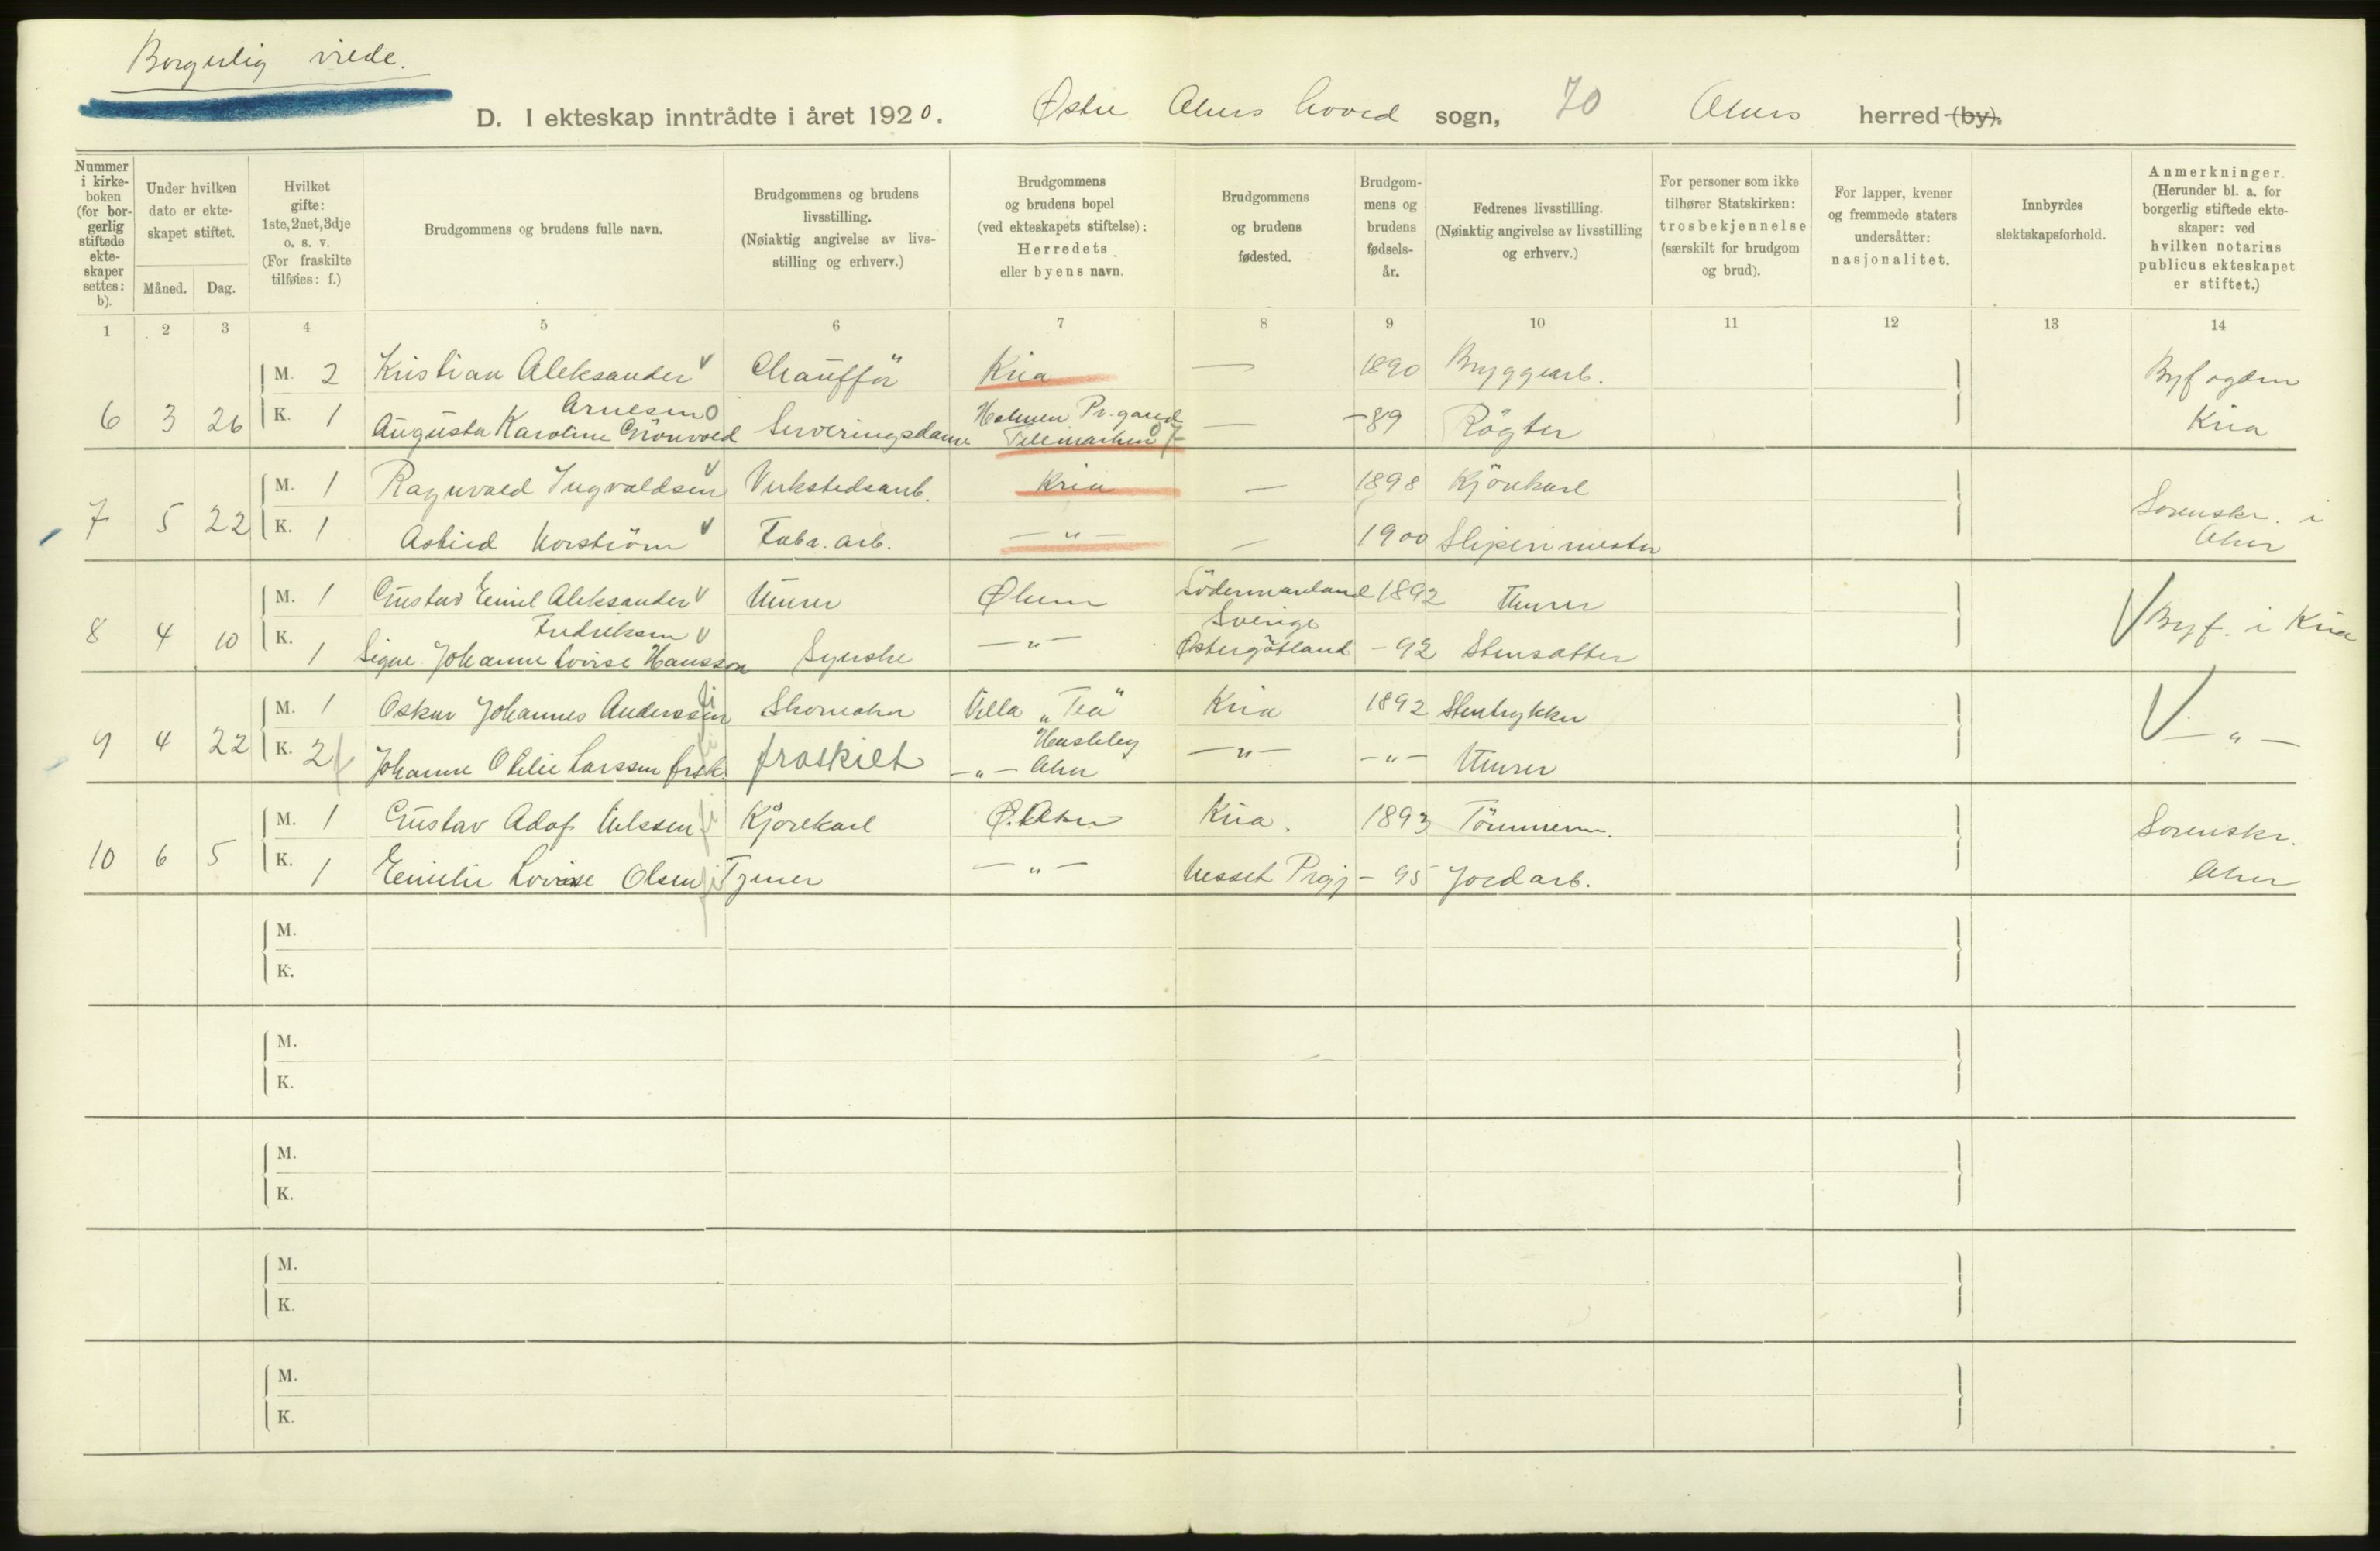 Borgerlig viede.
D. I ekteskap inntrådte i året 1920. Østre Akers hoved sogn, 70 Akers herred (by).
Nummer i kirkeboken (for borgerlig stiftede ekteskaper settes: b).
Under hvilken dato er ekteskapet stiftet.
Måned. Dag.
Hvilket gifte: 1ste, 2net, 3dje o. s. v. (For fraskilte tilføies: f.)
Brudgommens og brudens fulle navn.
Brudgommens og brudens livsstilling. (Nøiaktig angivelse av livsstilling og erhverv.)
Brudgommens og brudens bopel (ved ekteskapets stiftelse): Herredets eller byens navn.
Brudgommens og brudens fødested.
Brudgommens og brudens fødselsår.
Fedrenes livsstilling. (Nøiaktig angivelse av livsstilling og erhverv.)
For personer som ikke tilhører Statskirken: trosbekjennelse (særskilt for brudgom og brud).
For lapper, kvener og fremmede staters undersåtter: nasjonalitet.
Innbyrdes slektskapsforhold.
Anmerkninger. (Herunder bl. a. for borgerlig stiftede ekteskaper: ved hvilken notarius publicus ekteskapet er stiftet.)
1 2 3 4 5 6 7 8 9 10 11 12 13 14
M. 2 Kristian Aleksander Chauffør Kria — 1890 Bryggearb. Byfogden
Arnesen
6 3 26 K. 1 Augusta Karoline Grönvold Serveringsdame Holmen Pr.gaard Telemarken — -89 Rögter Kria
M. 1 Ragnvald Ingvaldsen Verkstedsarb. Kria — 1898 Kjörekarl Sorenskr. i
7 5 22 K. 1 Astrid Norström Fabr. arb. — " — — 1900 Sliperimester Aker
M. 1 Gustav Emil Aleksander Murer Ø Södermanland 1892 Murer
Fredriksen Sverige
8 4 10 K. 1 Signe Johanne Lovise Hansson Syerske — " — Östergötland - 92 Stensætter Byf. i Kria
M. 1 Oskar Johannes Anderssen Skomaker Villa "Tea" Kria 1892 Stentrykker
9 4 22 K. 2 f Johanne Otilie Larssen frsk. fraskilt — " — Aker — " — — " — Murer — " —
M. 1 Gustav Adof Nilssen Kjörekarl Ø. Aker Kria. 1893 Tömmerm. Sorenskr.
10 6 5 K. 1 Emilie Lovise Olsen Tjener — " — Nesset Prgj - 95 Jordarb. Aker
M.
K.
M.
K.
M.
K.
M.
K.
M.
K.